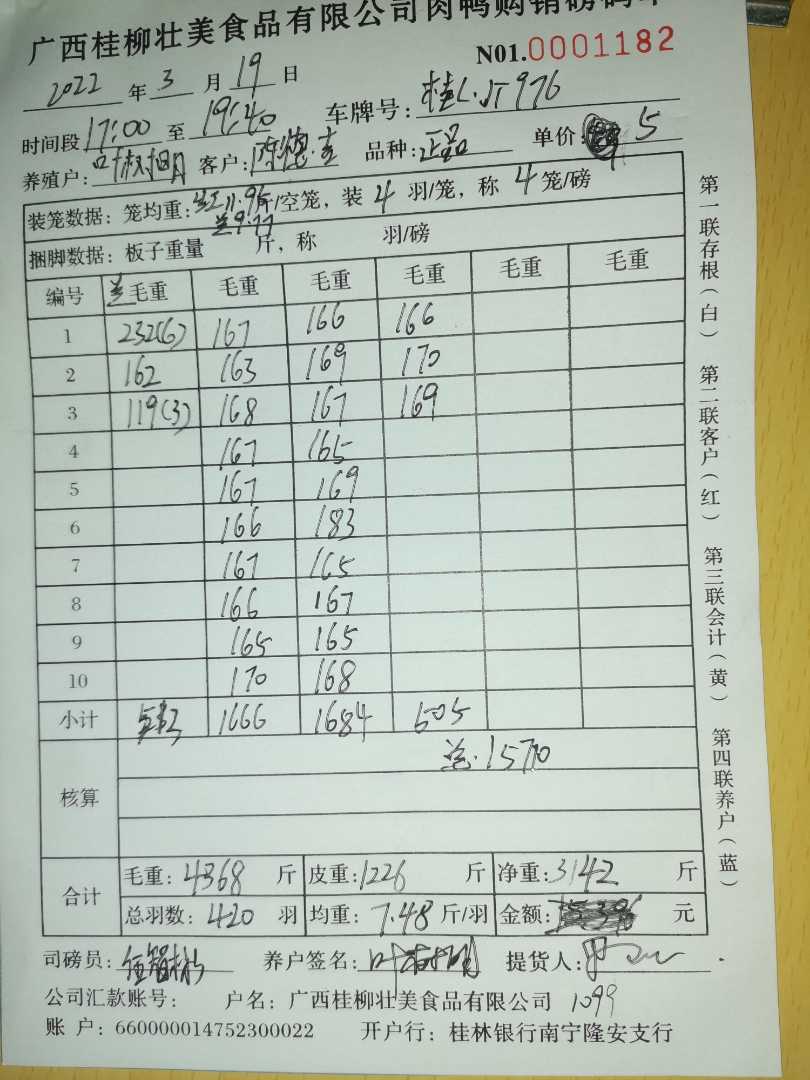 广西桂柳壮美食品有限公司肉鸭购销磅码单
N01.0001182
2022 年 3 月 19 日
时间段 17:00 至 19:40 车牌号: 976
养殖户: 客户: 品种:正品 单价: 5
装笼数据: 笼均重: 红11.95 斤/空笼, 装 4 羽/笼, 称 4 笼/磅
兰9.77
捆脚数据: 板子重量 斤, 称 羽/磅
编号 兰 毛重 毛重 毛重 毛重 毛重 毛重
1 232(6) 167 166 166
2 162 163 169 170
3 119(3) 168 167 169
4 167 165
5 167 169
6 166 183
7 167 165
8 166 167
9 165 165
10 170 168
小计 1666 1684 505
核算 总.15710
合计 毛重: 4368 斤 皮重: 1226 斤 净重: 3142 斤
总羽数: 420 羽 均重: 7.48 斤/羽 金额: 元
司磅员: 养户签名: 提货人:
公司汇款账号: 户名: 广西桂柳壮美食品有限公司 1099
账 户: 660000014752300022 开户行: 桂林银行南宁隆安支行
第一联存根(白) 第二联客户(红) 第三联会计(黄) 第四联养户(蓝)